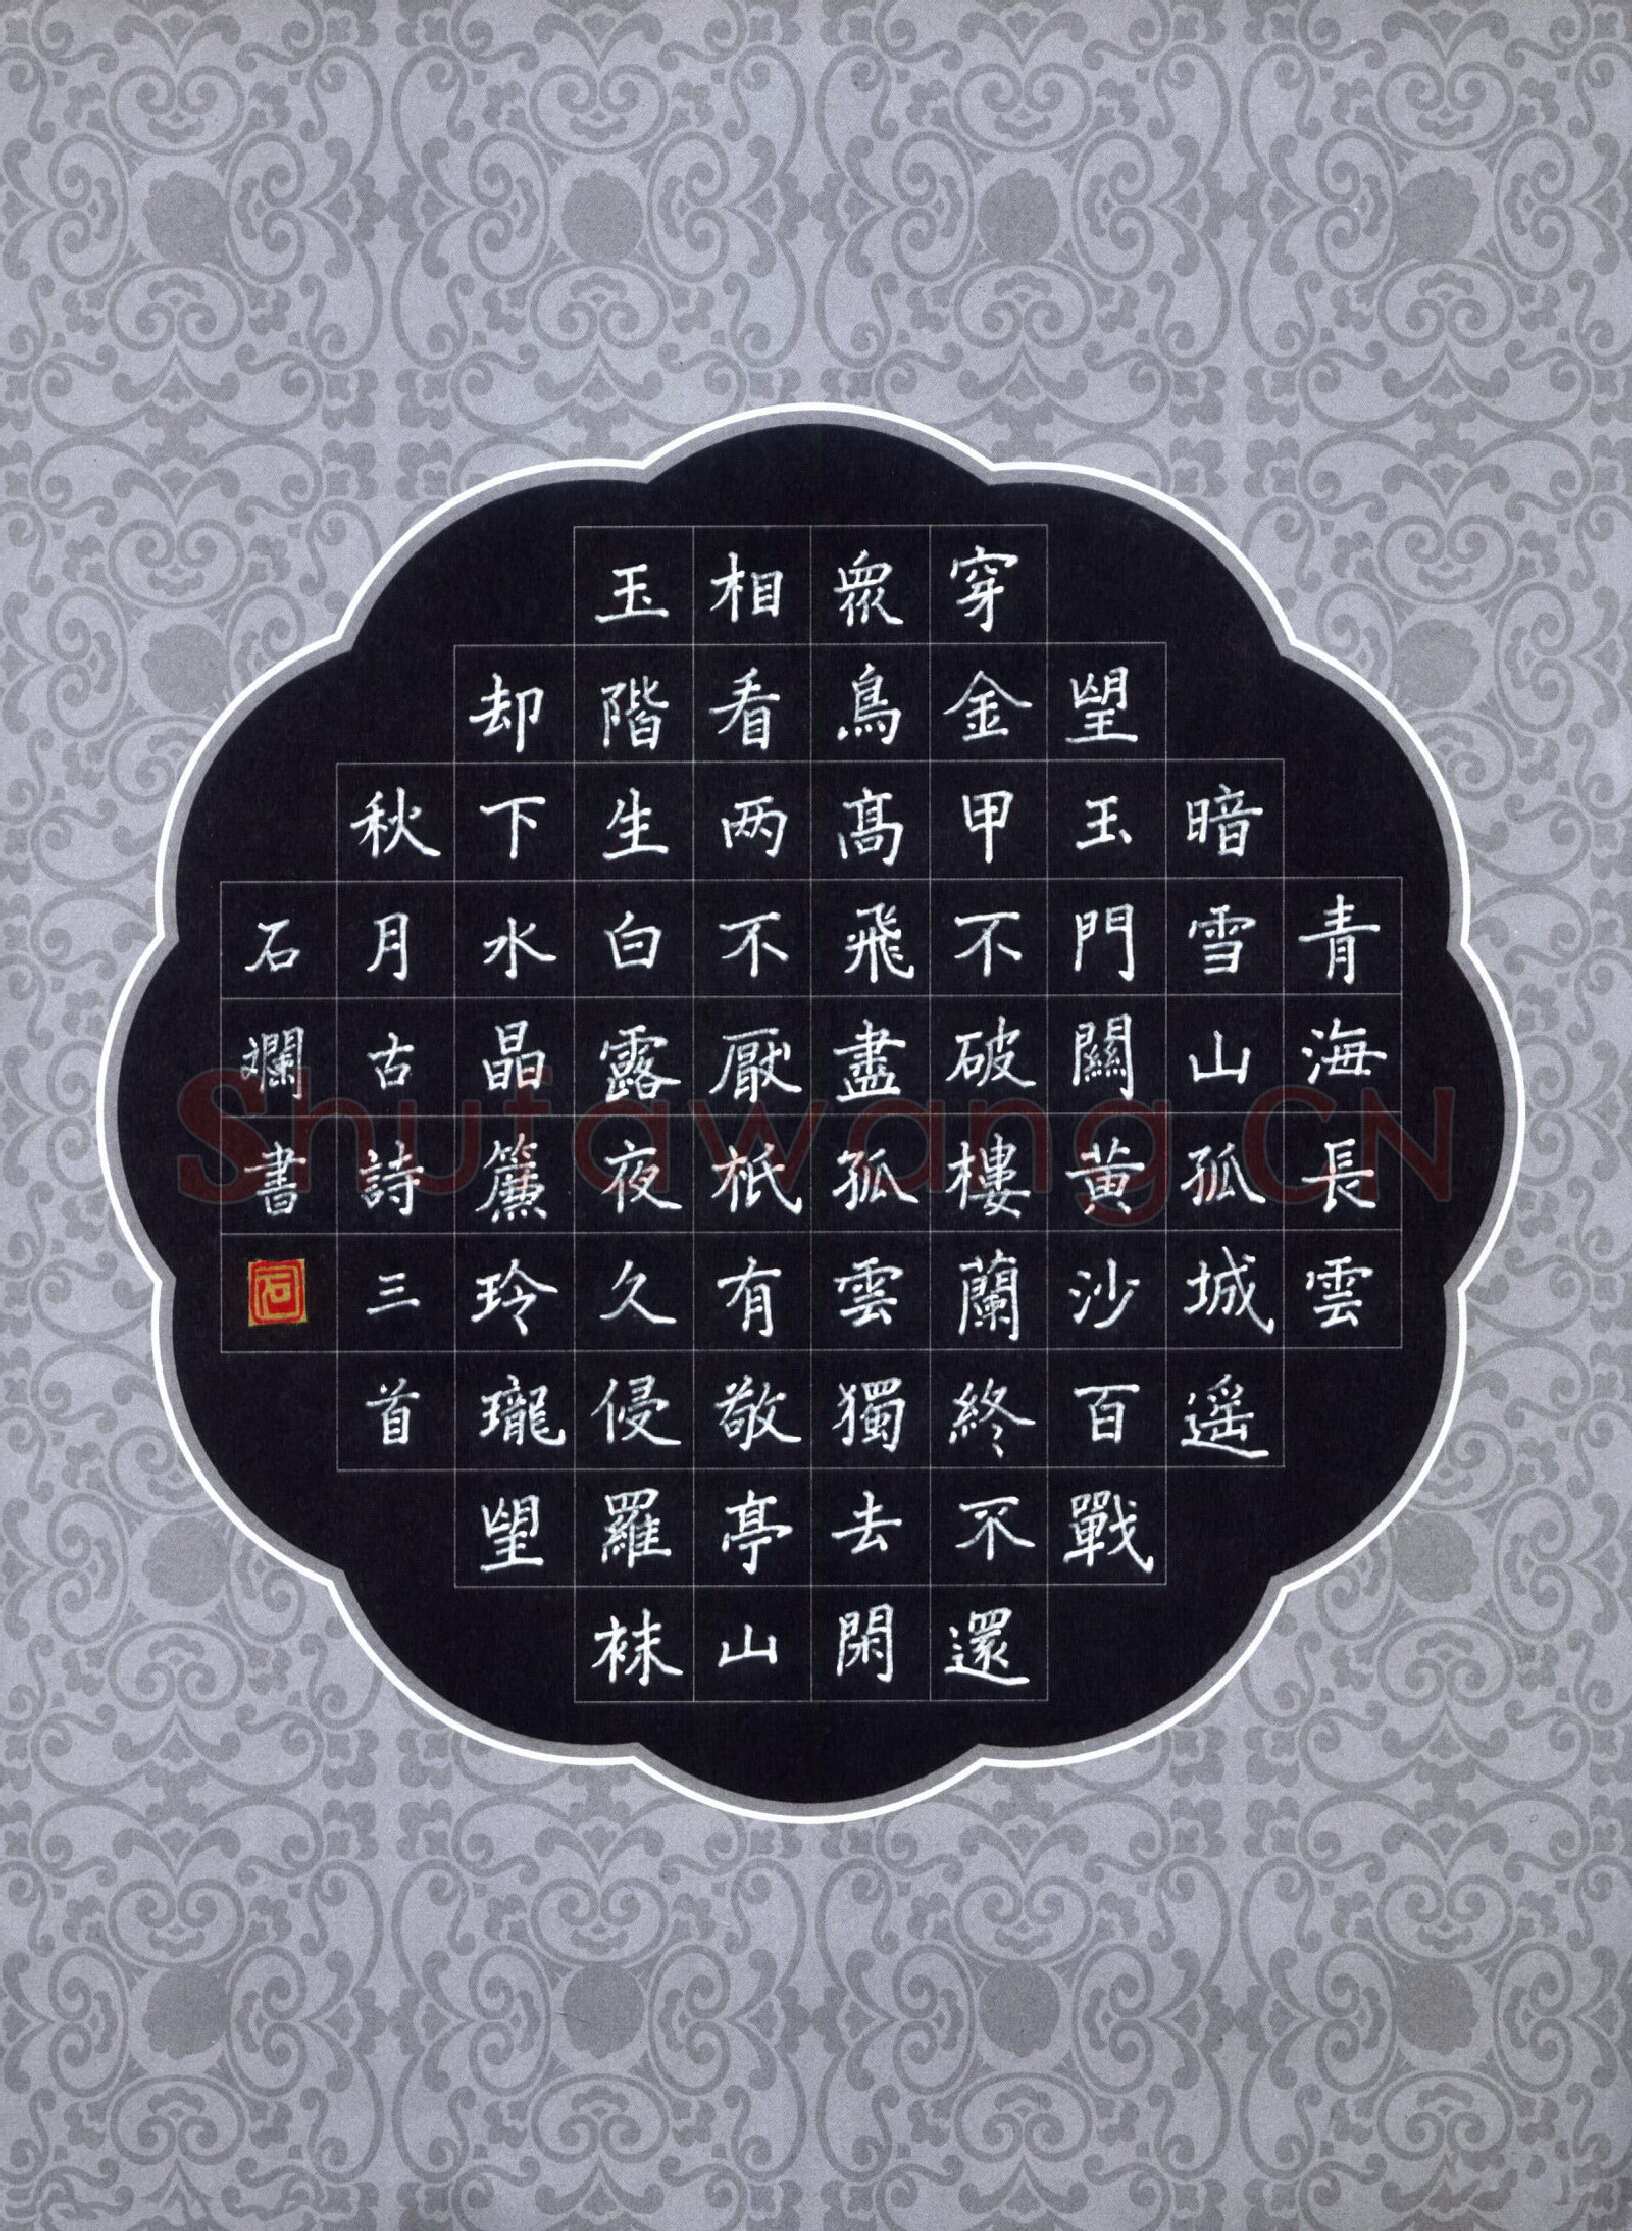 青海長雲
暗雪山孤城遥
望玉門關黄沙百戰
穿金甲不破樓蘭終不還
衆鳥高飛盡孤雲獨去閑
相看两不厭衹有敬亭山
玉階生白露夜久侵羅袜
却下水晶簾玲瓏望
秋月古詩三首
石斕書
石
Shufawang.CN